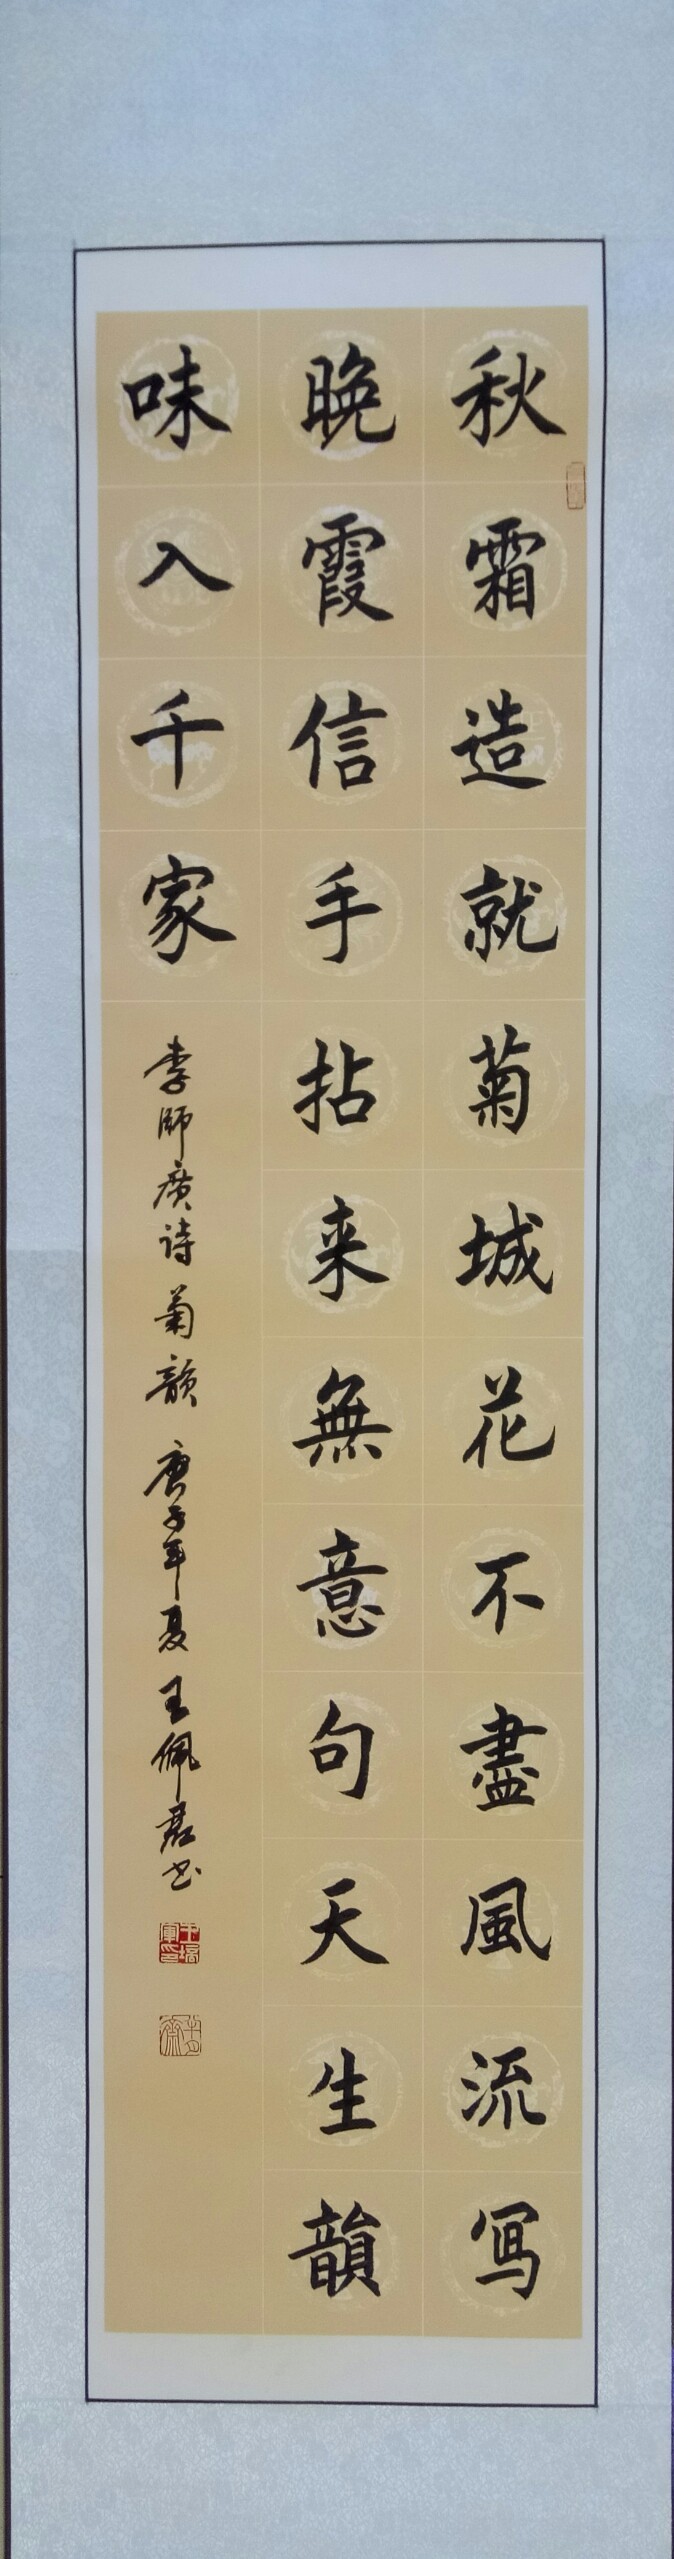 秋霜造就菊城花不盡風流寫
晚霞信手拈来無意句天生韻
味入千家
李師廣诗菊韻 庚子年夏王佩君书